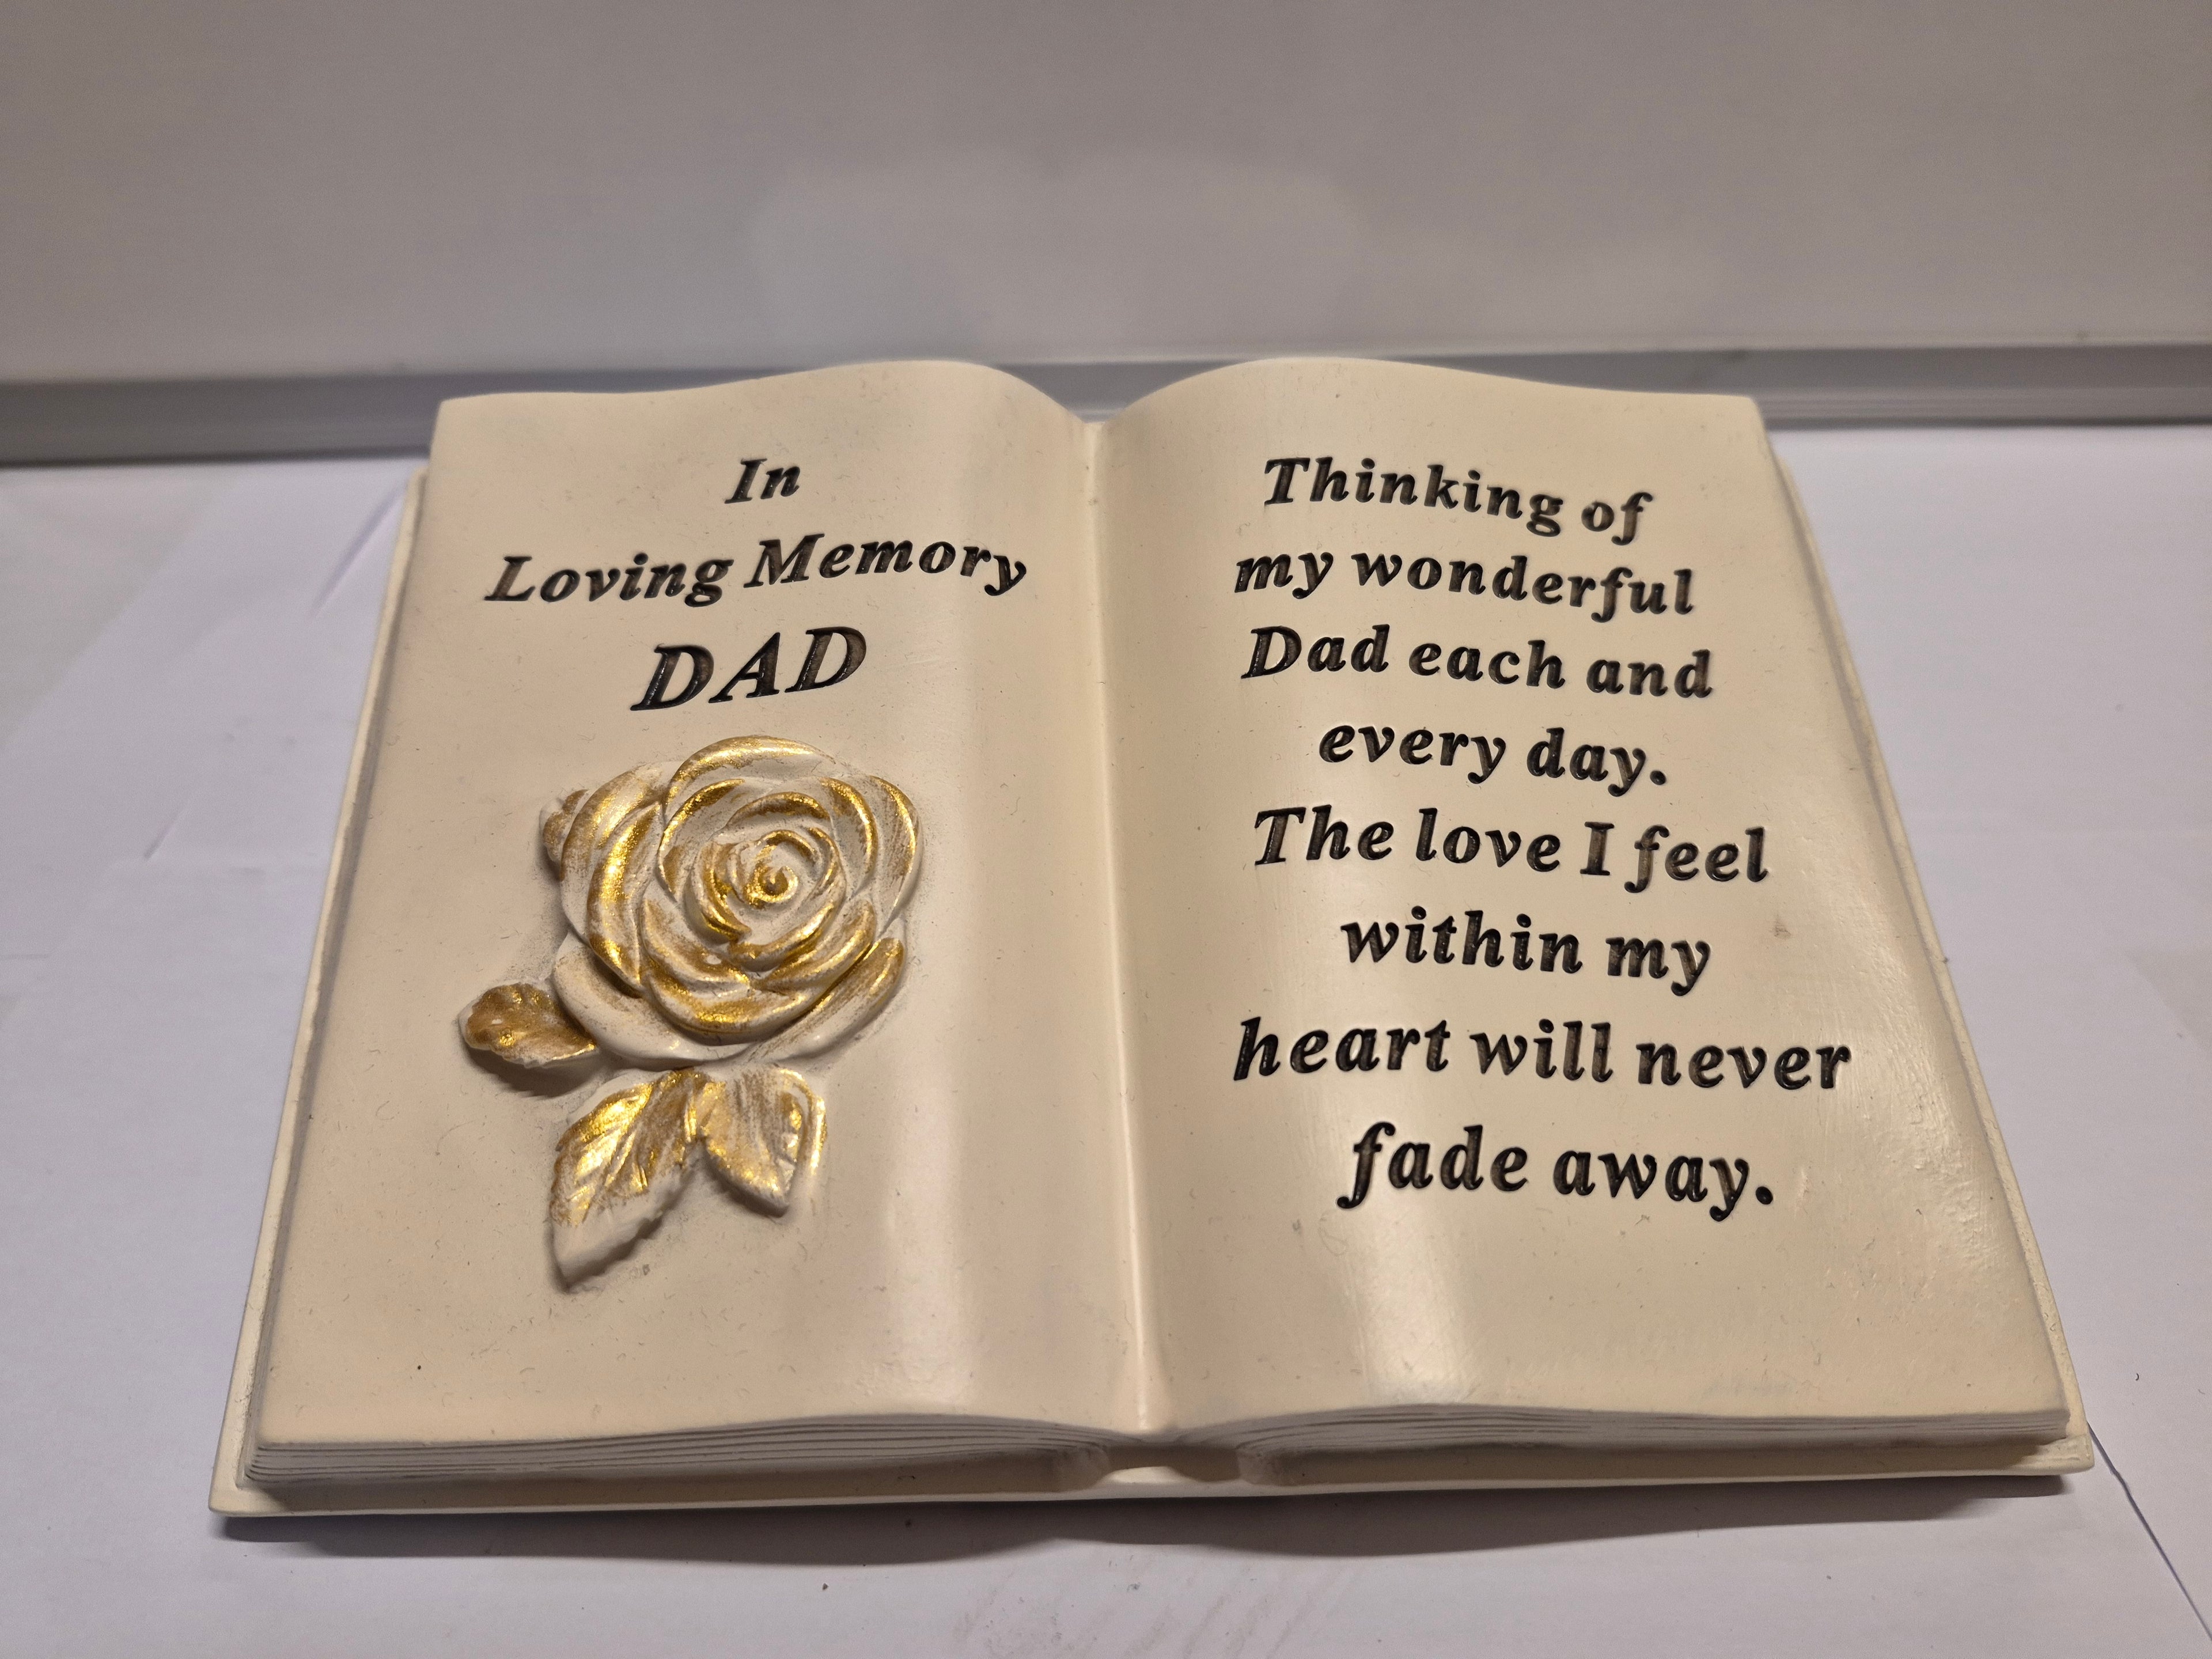 In
Loving Memory
DAD
Thinking of
my wonderful
Dad each and
every day.
The love I feel
within my
heart will never
fade away.